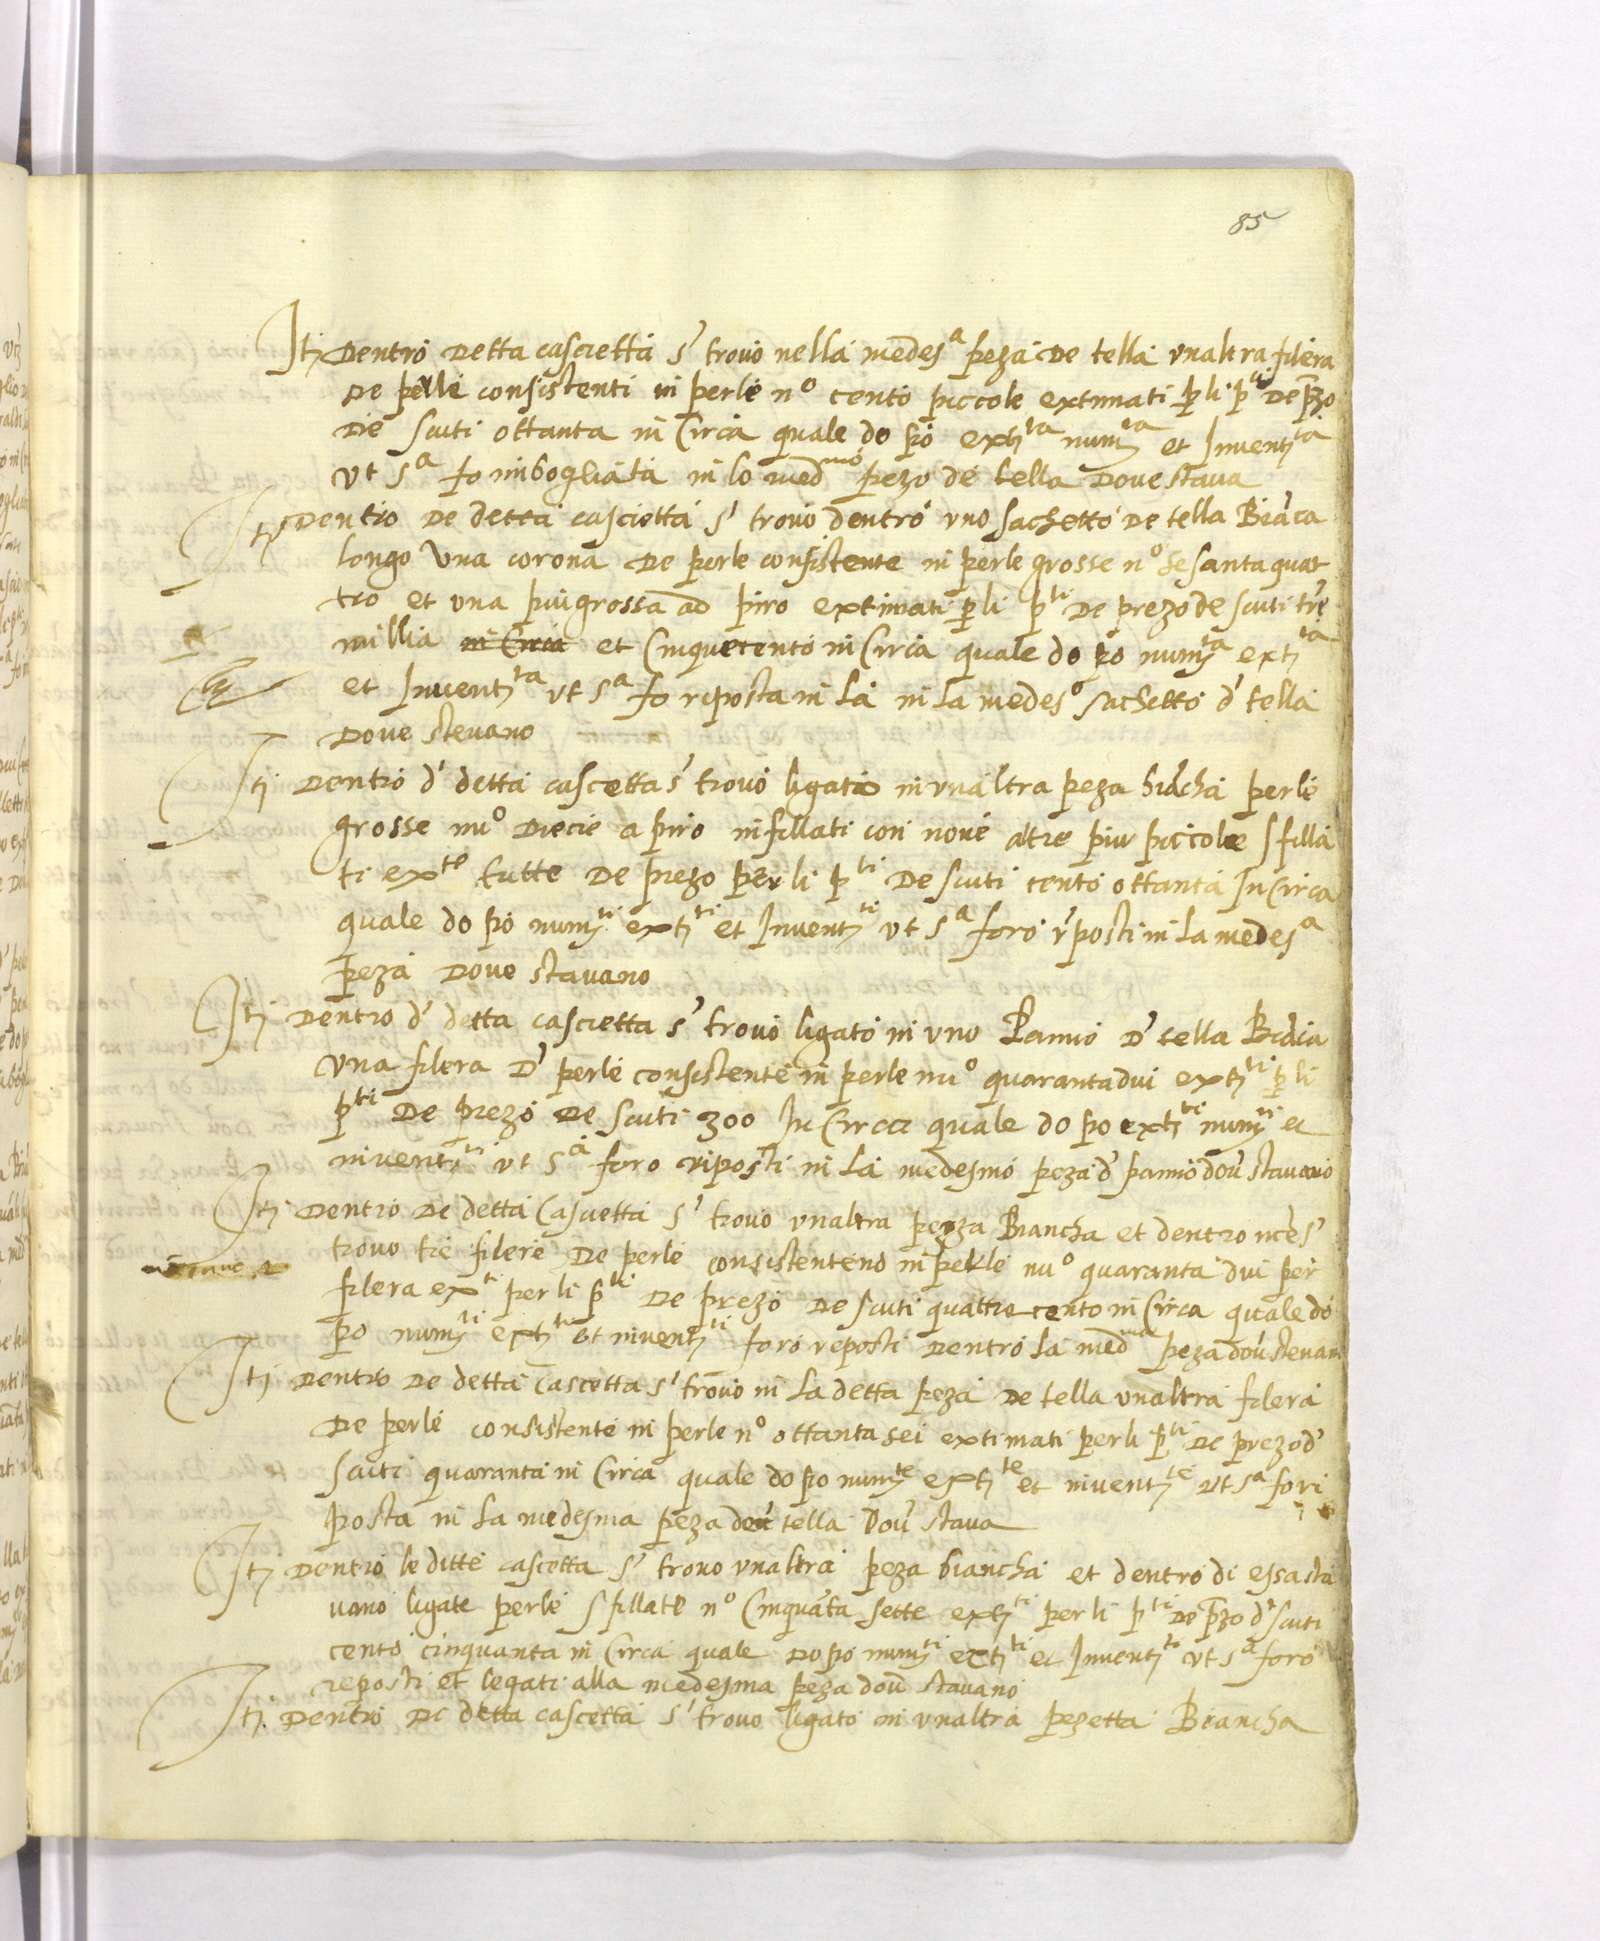 85
Itj Dentro detta cascietta s' trouo nella medes^a peza de tella vnaltra filera
de perle consistenti in perle n^o cento piccole extimati p li p^ti de pzo
die scuti ottanta in Circa quale do po ext^ta num^ta et Invent^ta
vt s^a fo inbogliata in lo med^mo pezo de tella doue staua
Itj Dentro de detta cascietta s' trouo dentro vno sachetto de tella Biāca
longo Vna corona de perle consistente in perle grosse n^o sesantaquat
tro et una piu grossa ad piro extimati p li p^ti de prezo de scuti tre
millia in Circa et Cinquecento in Circa quale do po num^ta ext^ta
et Invent^ta vt s^a fo reposta in la in la medes^o sachetto d' tella
doue steuano
Itj Dentro d' detta cascetta s' trouo ligato in vnaltra peza biācha perle
grosse nu^o diecie a piro infillati con noue altre piu piccole sfilla
ti ex^te tutte de prezo per li p^ti de scuti cento ottanta In Circa
quale do po num^ti ext^ti et Invent^ti vt s^a foro r'posti in la medes^a
peza doue stauano
Itj Dentro d' detta cascietta s' trouo ligato in vno Panno d' tella Biāca
vna filera d' perle consistente in perle nu^o quarantadui ext^ti p li
p^ti de prezo de scuti 300 In Circa quale do po ext^ti num^ti et
invent^ti vt s^a foro riposti in la medesmo peza d' panno dou' stauano
Itj Dentro de detta Cascietta s' trouo vnaltra pezza Biancha et dentro nce s'
trouo tre filere de perle consistenteno in perle nu^o quaranta dui per
filera ex^ti per li p^ti de prezo de scuti quattro cento in Circa quale do
po num^ti ext^ti et invent^ti foro reposti dentro la med^ma peza dou' steuano
Itj Dentro de detta cascetta s' trouo in la detta peza de tella vnaltra filera
de perle consistente in perle n^o ottanta sei extimati per li p^ti de prezo d'
scuti quaranta in Circa quale do po num^te ext^te et invent^te vt s^a fo ri
posta in la medesma peza de tella dou' staua
Itj Dentro le ditte cascetta s' trouo vnaltra peza biancha et dentro di essa sta
uano ligate perle sfillate n^o Cinquāta sette ext^ti per li p^ti de pzo d' scuti
cento cinquanta in Circa quale do po num^ti ext^ti et Invent^ti vt s^a foro
reposti et legati alla medesma peza dou' stauano
Itj Dentro de detta cascetta s' trouo ligato in vnaltra pezetta Biancha